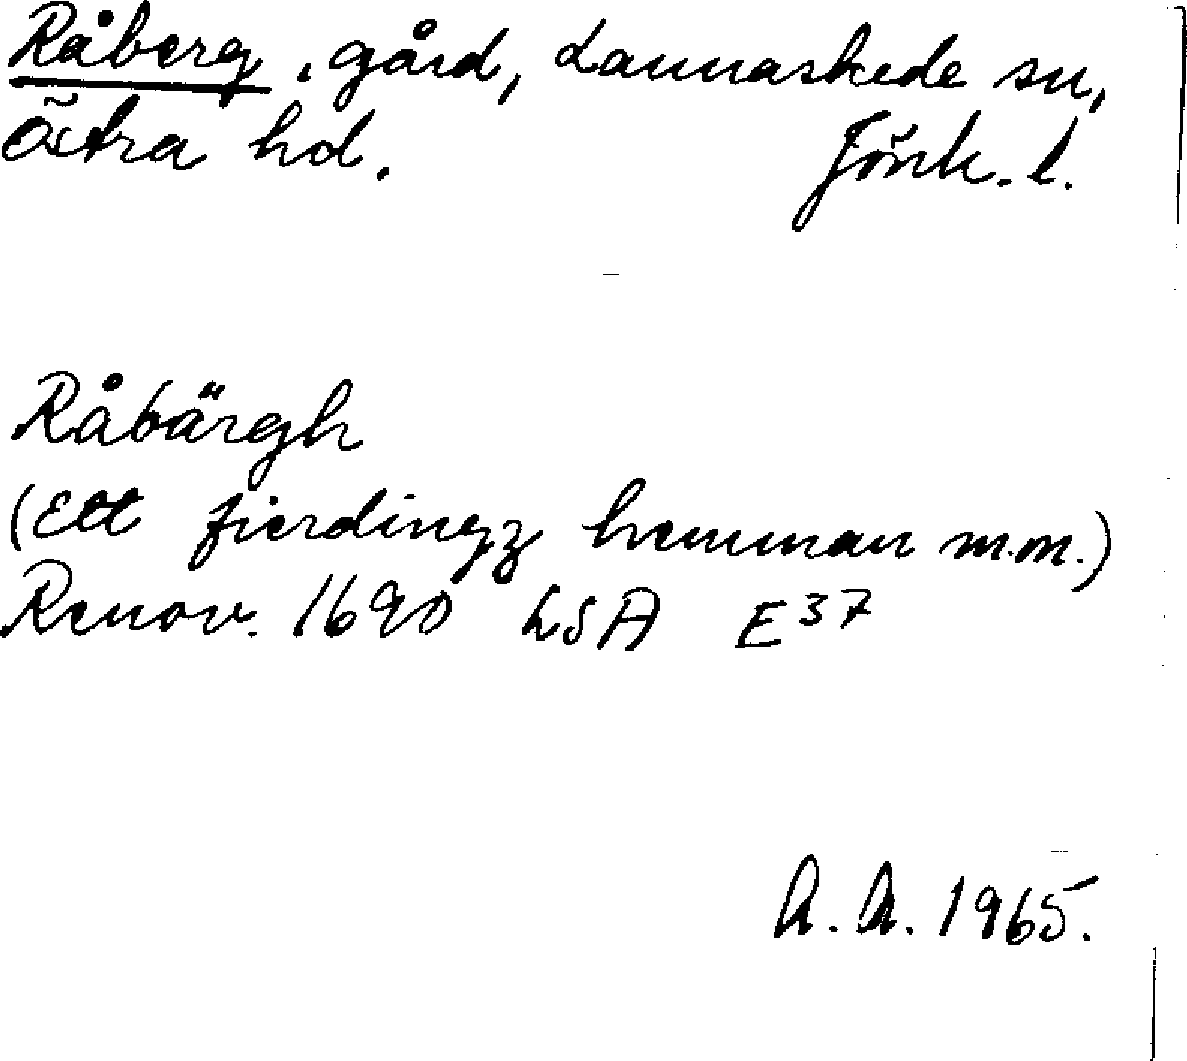 Råberg, gård, Lannaskede sn,
Östra hd. Jönk. l.
Råbärgh
(Ett fierdingz hemman m.m.)
Renov. 1690 LSA E37
A. A. 1965.